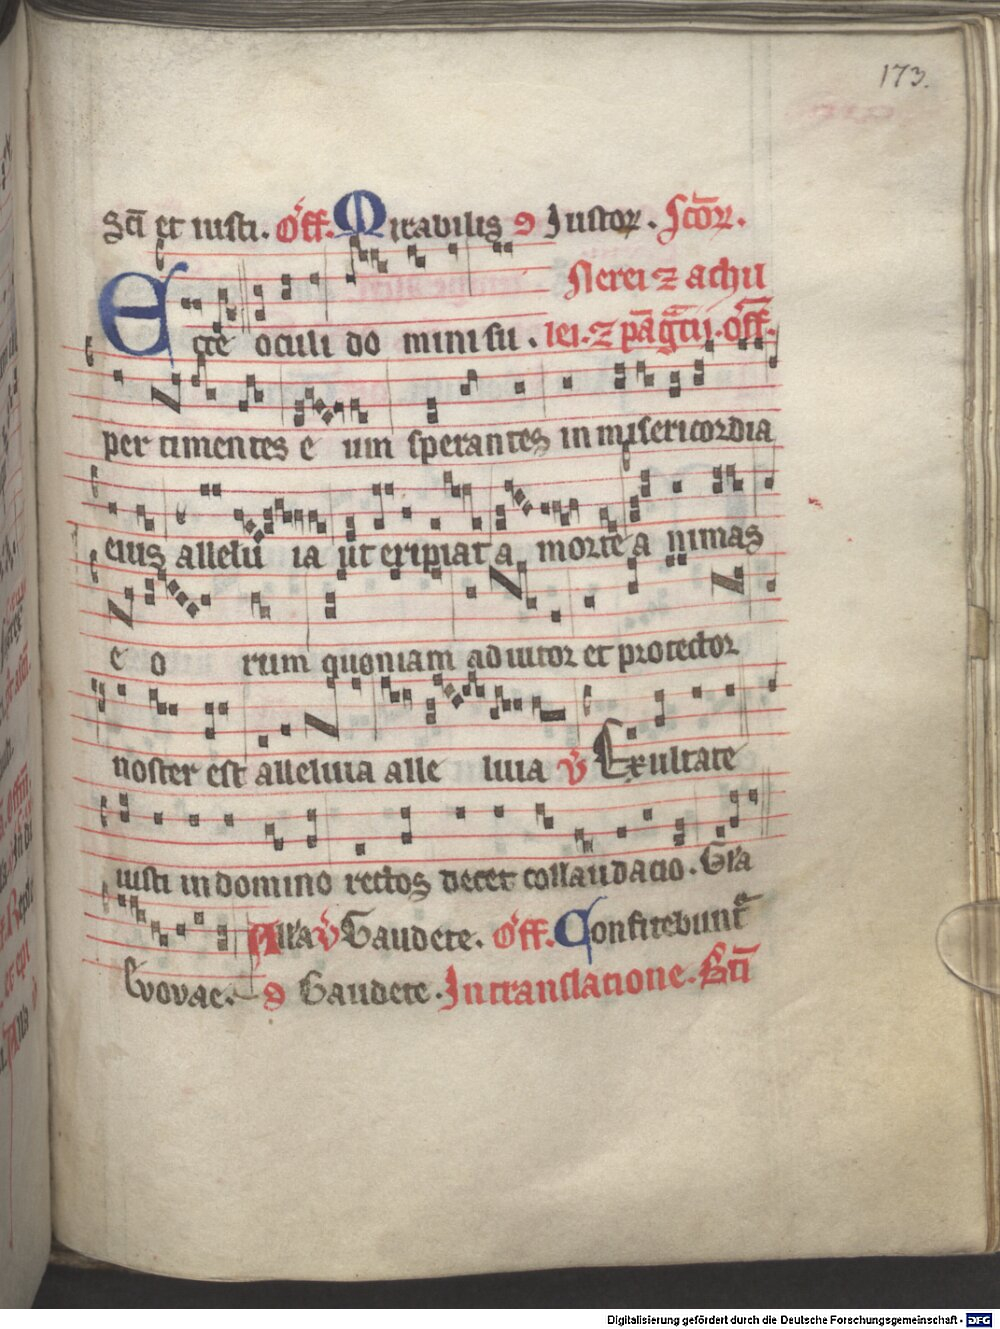 173.
Scī et iusti. Off. Mirabilis Iustoꝝ. Sctoꝝ.
Nerei ⁊ achil
Ecce oculi do mini su . lei. ⁊ pāgᵃcij. off.
per timentes e um sperantes in misericordia
eius allelu ia ut eripiat a morte a nimas
e o rum quoniam adiutor et protector
noster est alleluia alle luia v̄ Exultate
iusti in domino rectos decet collaudacio. Gla
Alla v̄ Gaudete. Off. Confitebunt
Evovae. Gaudete. In translacione. Scī
Digitalisierung gefördert durch die Deutsche Forschungsgemeinschaft - DFG